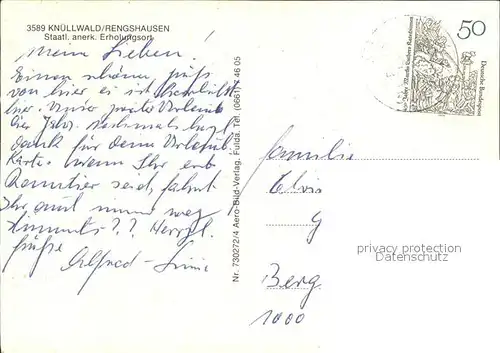 3589 KNÜLLWALD/RENGSHAUSEN
Staatl. anerk. Erholungsort
Meine Lieben!
Einen schönen Gruß
von hier es ist herrlichst
hier. Unser zweiter Urlaub
dies Jahr. Nochmals herzl.
dank für denn Urlaub
Karte. Wenn Ihr erst
Rentner seid, fahrt
Ihr auch immer weg
stimmts?? Herzl.
Grüße
Alfred
Nr. 730272/4 Aero-Bild-Verlag, Fulda, Tel. (0661) 7 46 05
50
Deutsche Bundespost
350 Jahre Martin Luthers Katechismus
Familie
Elvis
G
Berg
1000
privacy protection
Datenschutz